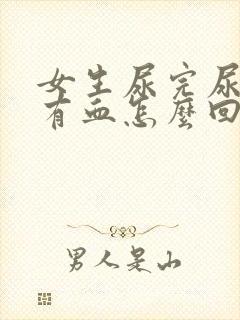 女生尿完尿
有血怎麼回
男人是山